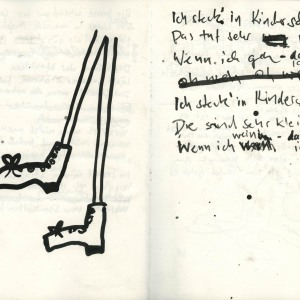 Ich steck' in Kindersc
Das tut sehr
Wenn ich geh - d
Ich steck' in Kindersc
Die sind sehr klei
Wenn ich wein - da